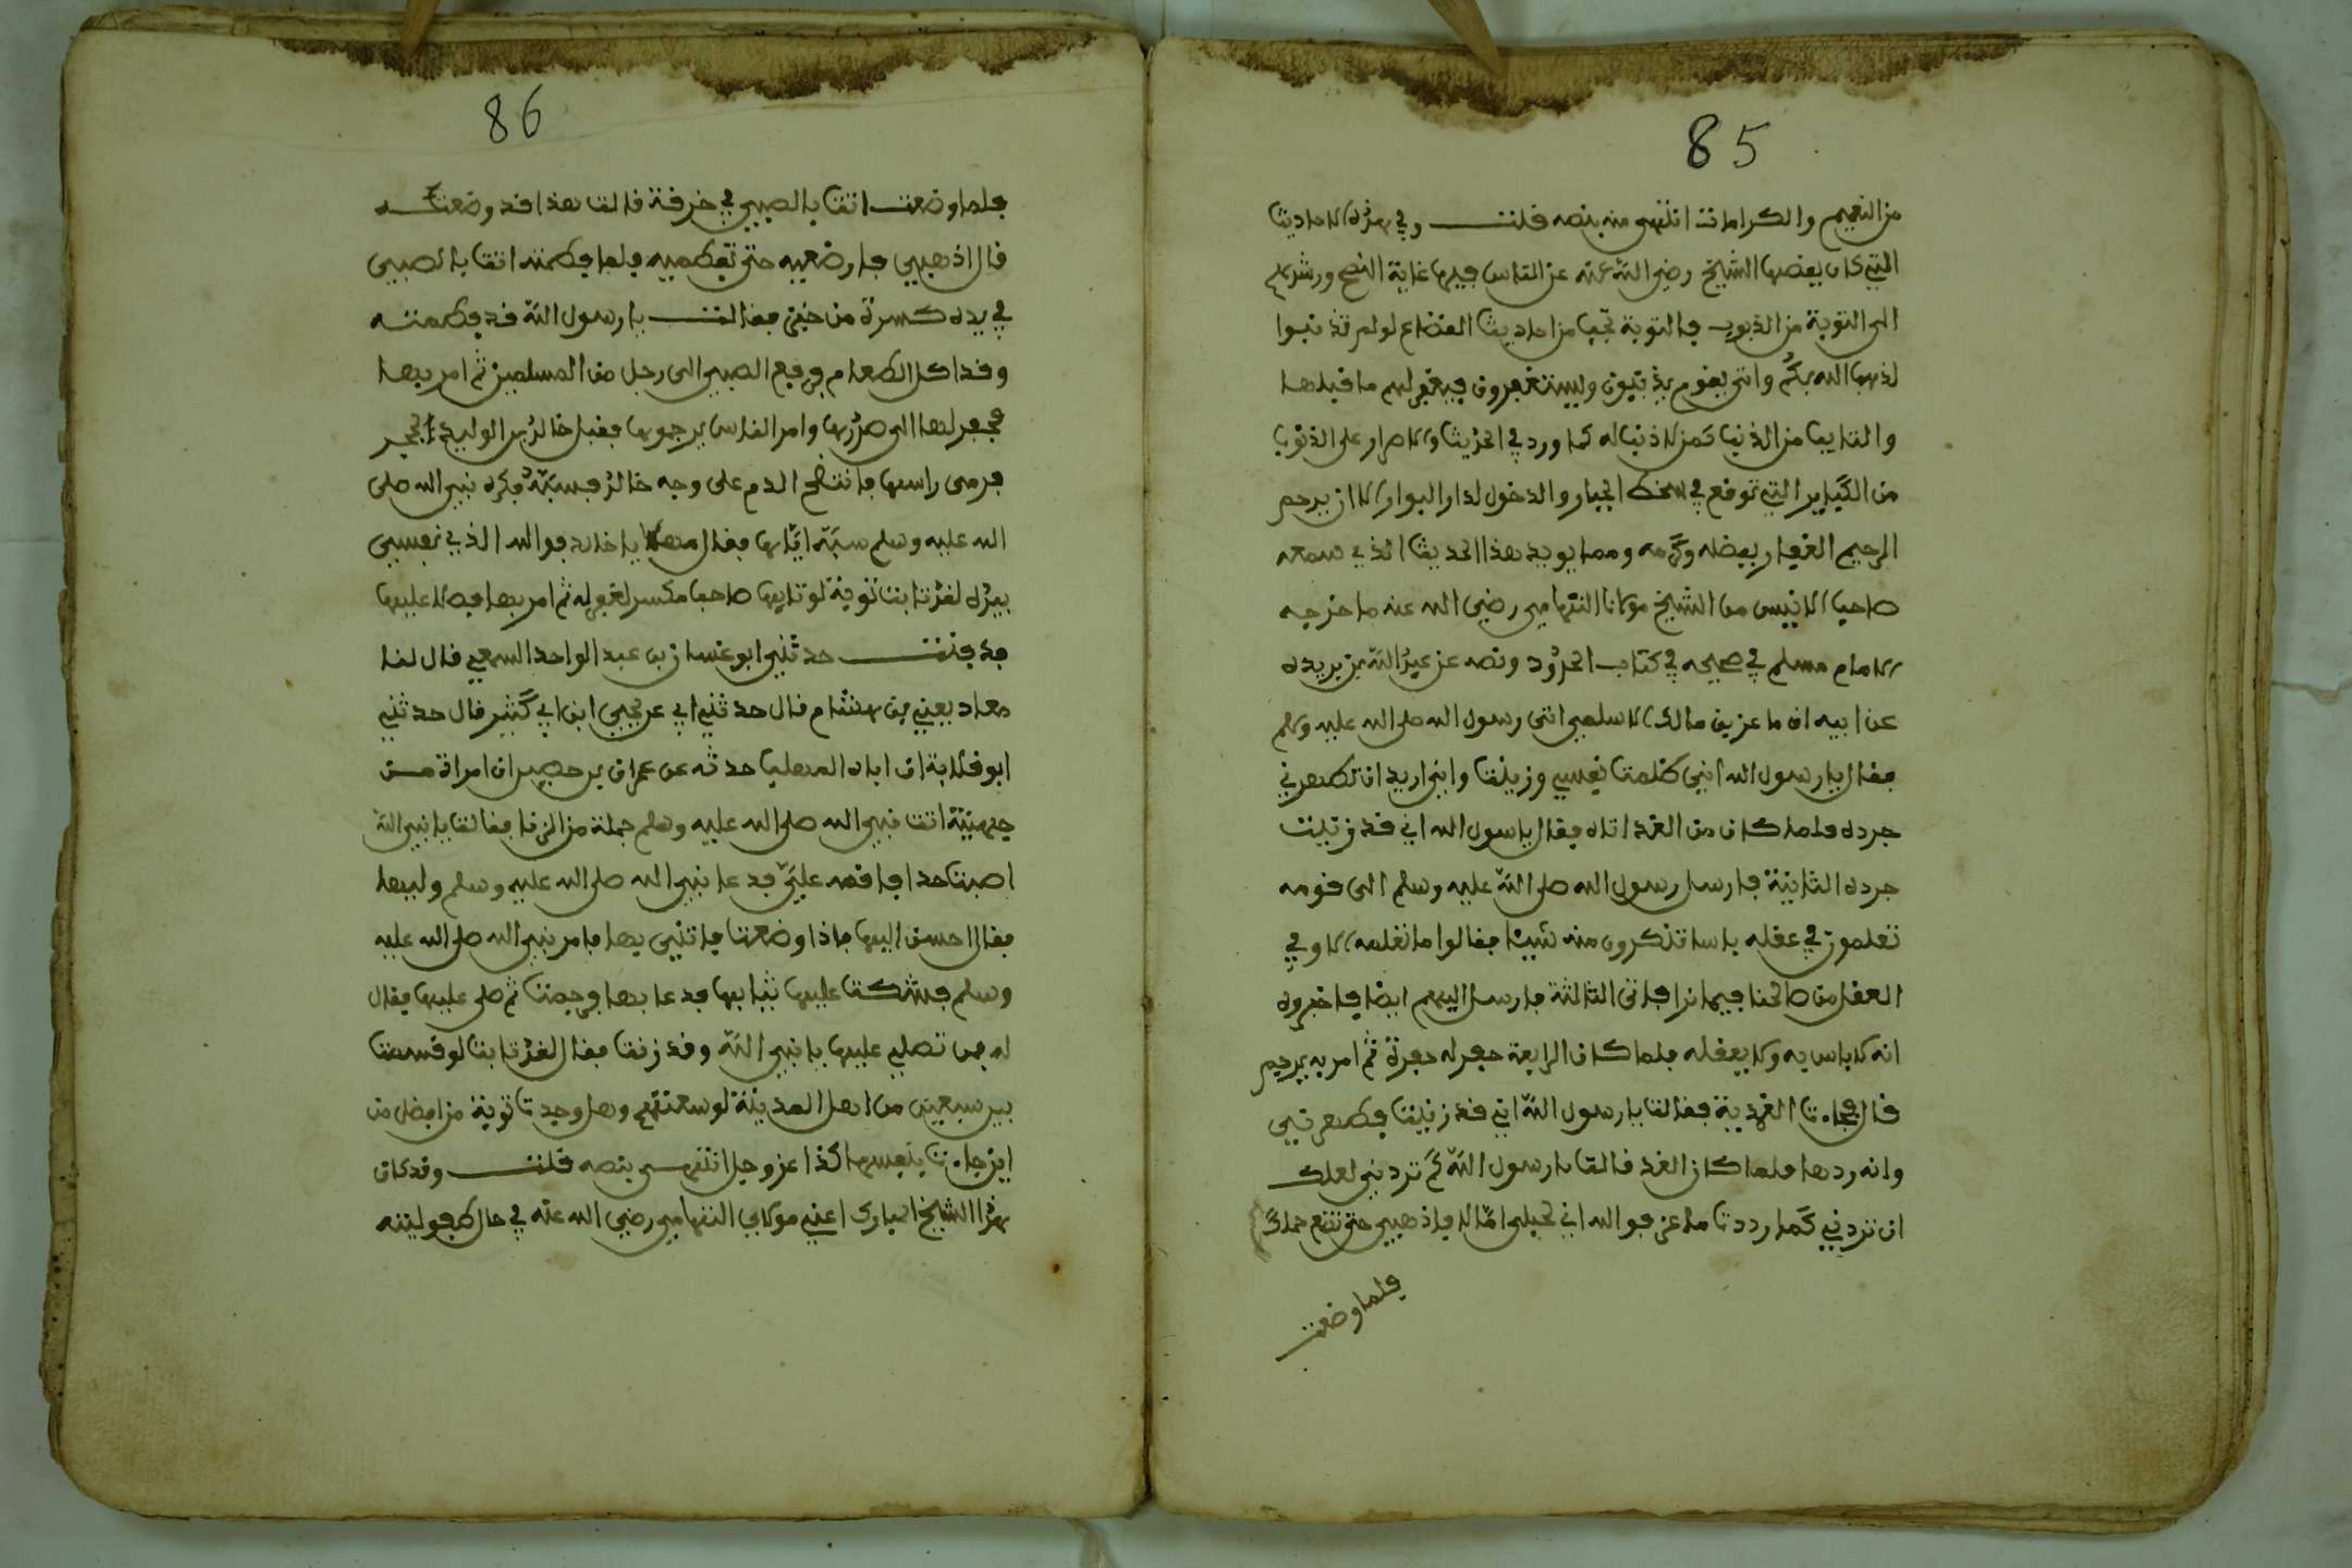 85
من النعيم والكرامات انتهى منه بنصه قلت وفي هذه الاحاديث
التي كان يقصها الشيخ رضي الله عنه عن الناس فيها غاية النصح ورشدهم
الى التوبة من الذنوب فالتوبة تجب من احاديث لو لم تذنبوا
لذهب الله بكم واتى بقوم يذنبون ويستغفرون فيغفر لهم ما قبلها
والتايب من الذنب كمن لا ذنب له كما ورد في الحديث والاصرار على الذنوب
من الكباير التي توقع في سخط الجبار والدخول لدار البوار الا ان يرحم
الرحيم الغفار بفضله وكرمه ومما يويد هذا الحديث الذي سمعه
صاحب الانيس من الشيخ مولانا التهامي رضي الله عنه ما خرجه
الامام مسلم في صحيحه في كتاب الحدود ونصه عن عبد الله بن بريدة
عن ابيه ان ماعز بن مالك الاسلمي اتى رسول الله صلى الله عليه وسلم
فقال يا رسول الله اني ظلمت نفسي وزنيت واني اريد ان تطهرني
فرده فلما كان من الغد اتاه فقال يا سول الله اني قد زنيت
فرده الثانية فارسل رسول الله صلى الله عليه وسلم الى قومه
تعلمون في عقله باسا تنكرون منه شيئا فقالوا ما نعلمه الا وفي
العقل من صالحنا فيما نرا فاتى الثالثة فارسل اليهم ايضا فاخبروه
انه لا باس به ولا بعقله فلما كان الرابعة حفر له حفرة ثم امر به يرجم
قال فجاءت الغمدية فقالت يا رسول الله اني قد زنيت فطهرني
وانه ردها فلما كان الغد قالت يا رسول الله لم تردني لعلك
ان تردني كما رددت ماعز فوالله اني لحبلى اما لا فاذهبي حتى تضع حملك
فلما وضعت
86
فلما وضعت اتت بالصبي في خرقة قالت هذا قد وضعته
قال اذهبي فارضعيه حتى تفطميه فلما فطمته اتت بالصبي
في يده كسرة من خبز فقالت يا رسول الله قد فطمته
وقد اكل الطعام فدفع الصبي الى رجل من المسلمين ثم امر بها
فحفر لها الى صدرها وامر الناس يرجموها فقبل خالد بن الوليد بحجر
فرمى راسها فانتضح الدم على وجه خالد فسبها فكره نبي الله صلى
الله عليه وسلم سبه اياها فقال مهلا يا خالد فوالله الذي نفسي
بيده لقد تابت توبة لو تابها صاحب مكس لغفر له ثم امر بها فصلا عليها
فدفنت حدثني ابو غسان بن عبد الواحد السمعي قال لنا
معاد يعني بن هشام قال حدثني ابي عن يحيى ابن ابي كثير قال حدثني
ابو قلابة ان اباه المهلب حدثه عن عمران بن حصين ان امراة من
جهينة اتت نبي الله صلى الله عليه وسلم حملة من الزنا فقالت يا نبي الله
اصبت حدا فاقمه علي فدعا نبي الله صلى الله عليه وسلم وليها
فقال احسن اليها فاذا وضعت فاتني بها فامر نبي الله صلى الله عليه
وسلم فشكت عليها ثيابها فدعا بها فرجمت ثم صلى عليها فقال
له عمر تصلي عليها يا نبي الله وقد زنت فقال لقد تابت لو قسمت
بين سبعين من اهل المدينة لوسعتهم وهل وجدت توبة من افضل من
اين جاءت بنفسها لله عز وجل انتهى بنصه قلت وقد كان
هذا الشيخ المبارك اعني مولاي التهامي رضي الله عنه في حال طفوليته